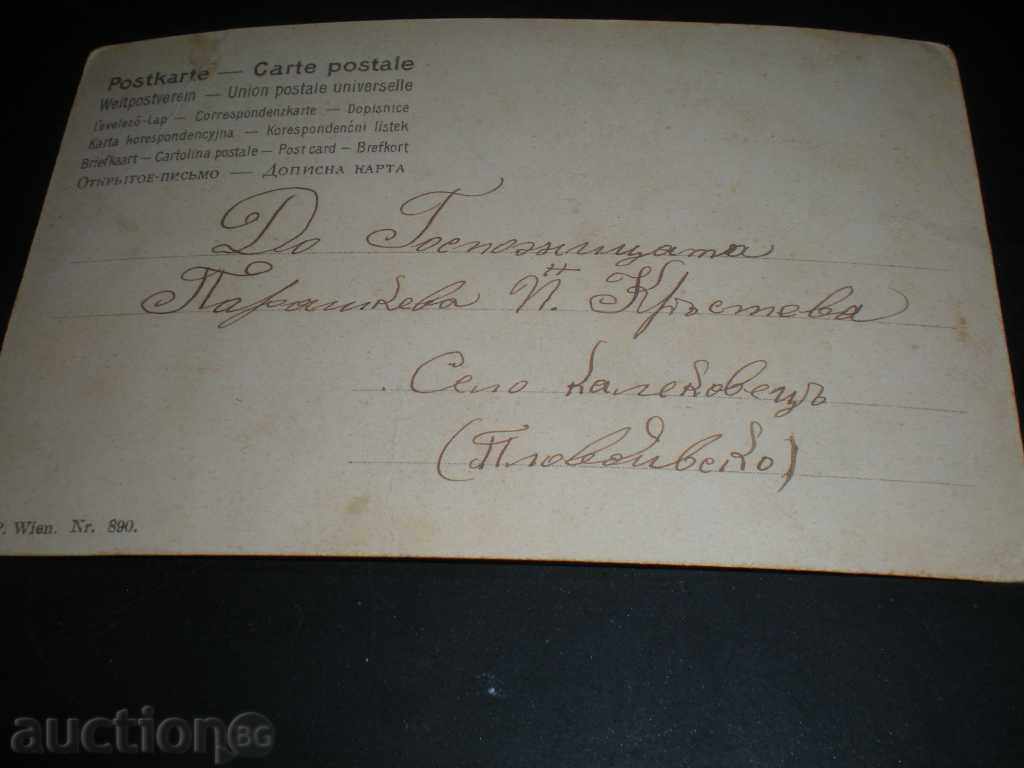 Postkarte — Carte postale
Weltpostverein — Union postale universelle
Levelező-Lap — Correspondenzkarte — Dopisnice
Karta korespondencyjna — Korespondenčni listek
Briefkaart — Cartolina postale — Post card — Brefkort
Открытое-письмо — Дописна карта
До Госпожицата
Парашкева П. Кръстева
Село Калековецъ
(Пловдивско)
P. Wien. Nr. 890.
auctionBG